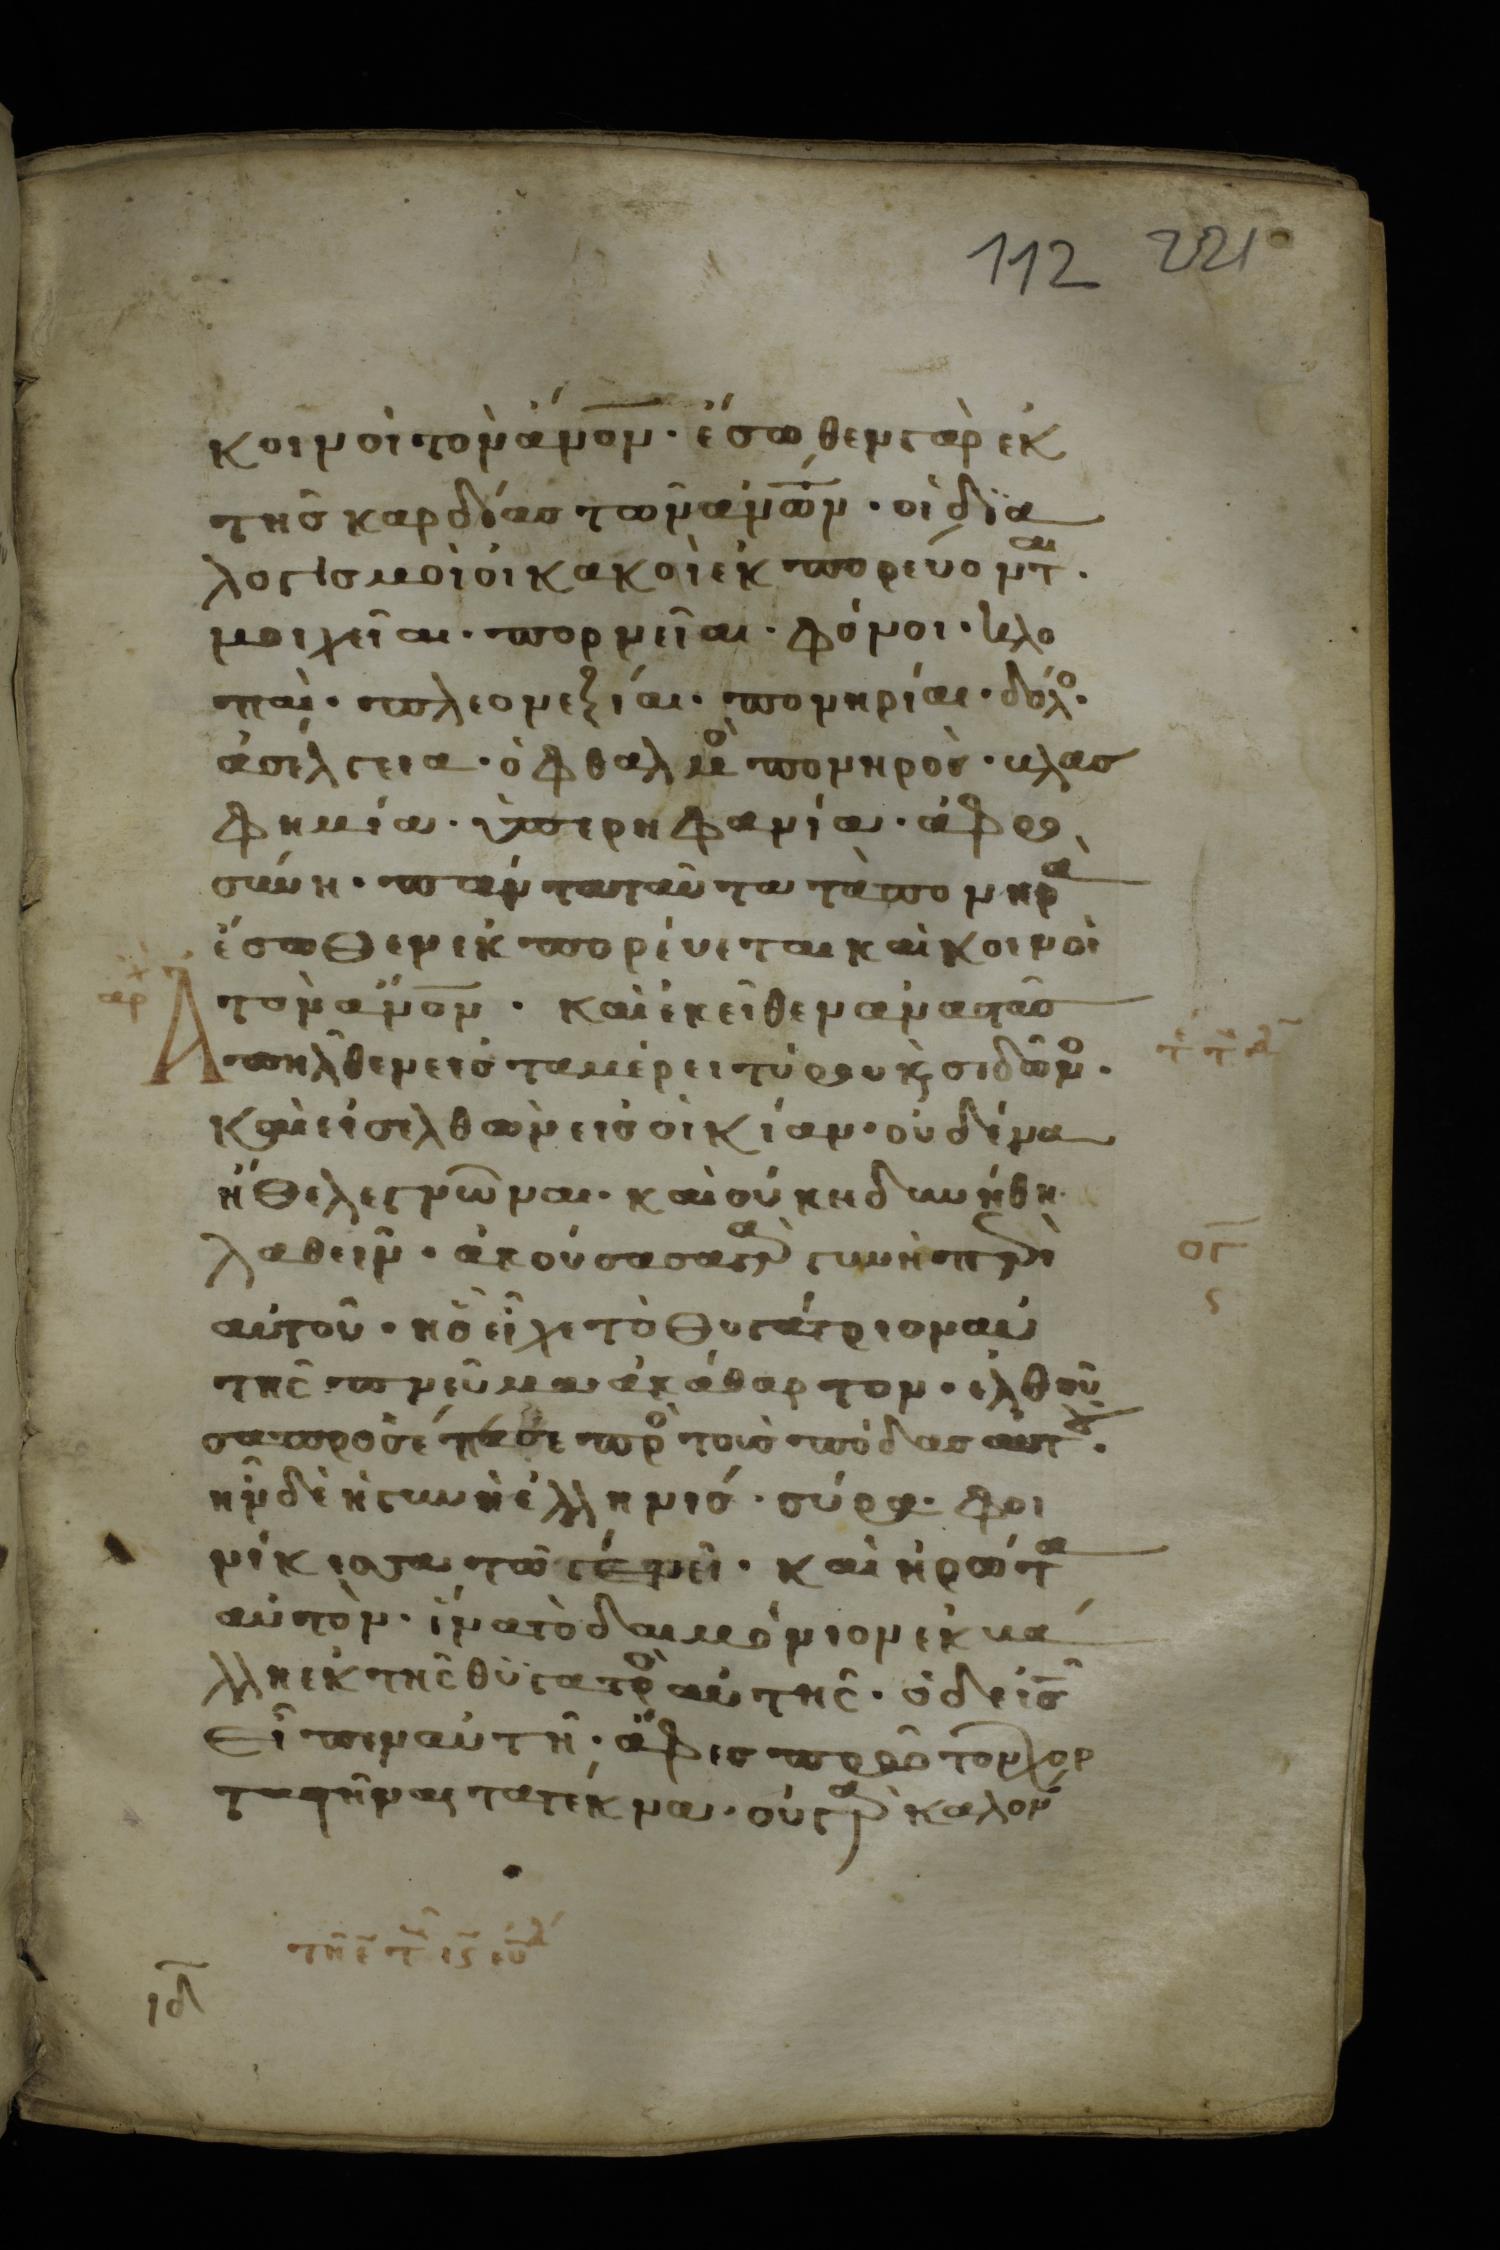 112 221
κοινοῖ τὸν ἄν̅ο̅ν̅· ἔσωθεν γὰρ ἐκ
τῆς καρδίας τῶν ἀν̅ω̅ν̅· οἱ δϊα
λογισμοὶ οἱ κακοὶ ἐκπορεύοντ(αι)·
μοιχεῖαι· πορνεῖαι· φόνοι· κλο
παὶ· πλεονεξίαι· πονηρίαι· δόλο(ς)·
ἀσέλγεια· ὀφθαλμὸ(ς) πονηρὸς· βλασ
φημία· ὑπερηφανία· ἀφρο
σύνη· πάντα ταῦτα τὰ πονηρὰ
ἔσωθεν ἐκπορεύεται καὶ κοινοῖ
τὸν ἄν̅ο̅ν̅· καὶ ἐκεῖθεν ἀναστὰς
ἀρχ
Ἀπῆλθεν εἰς τὰ μέρει τύρου κ(αὶ) σιδῶνο(ς)·
καὶ εἰσελθὼν εἰς οἰκίαν· οὐδένα
ἤθελε γνῶναι· καὶ οὐκ ἠδυνήθη
λαθεῖν· ἀκούσασα γὰρ γυνὴ περὶ
ος
ϛ
αὐτοῦ· ἧς εἶχε τὸ θυγάτριον αὐ
τῆς πνεῦμα ἀκάθαρτον· ἐλθοῦ
σα προσέπεσε πρὸ(ς) τοὺς πόδας αὐτοῦ·
ἦν δὲ ἡ γυνὴ ἑλληνὶς· σύρα· φοι
νίκισσα τῶ γένει· καὶ ἠρώτα
αὐτὸν· ἵνα τὸ δαιμόνιον ἐκβά
λλη ἐκ τῆς θϋγατρὸ(ς) αὐτῆς· ὁ δὲ ι̅ς̅
εἶπεν αὐτῆ· ἄφες πρῶτον χορ
τασθῆναι τὰ τέκνα· οὐ γὰρ καλόν
ιδ